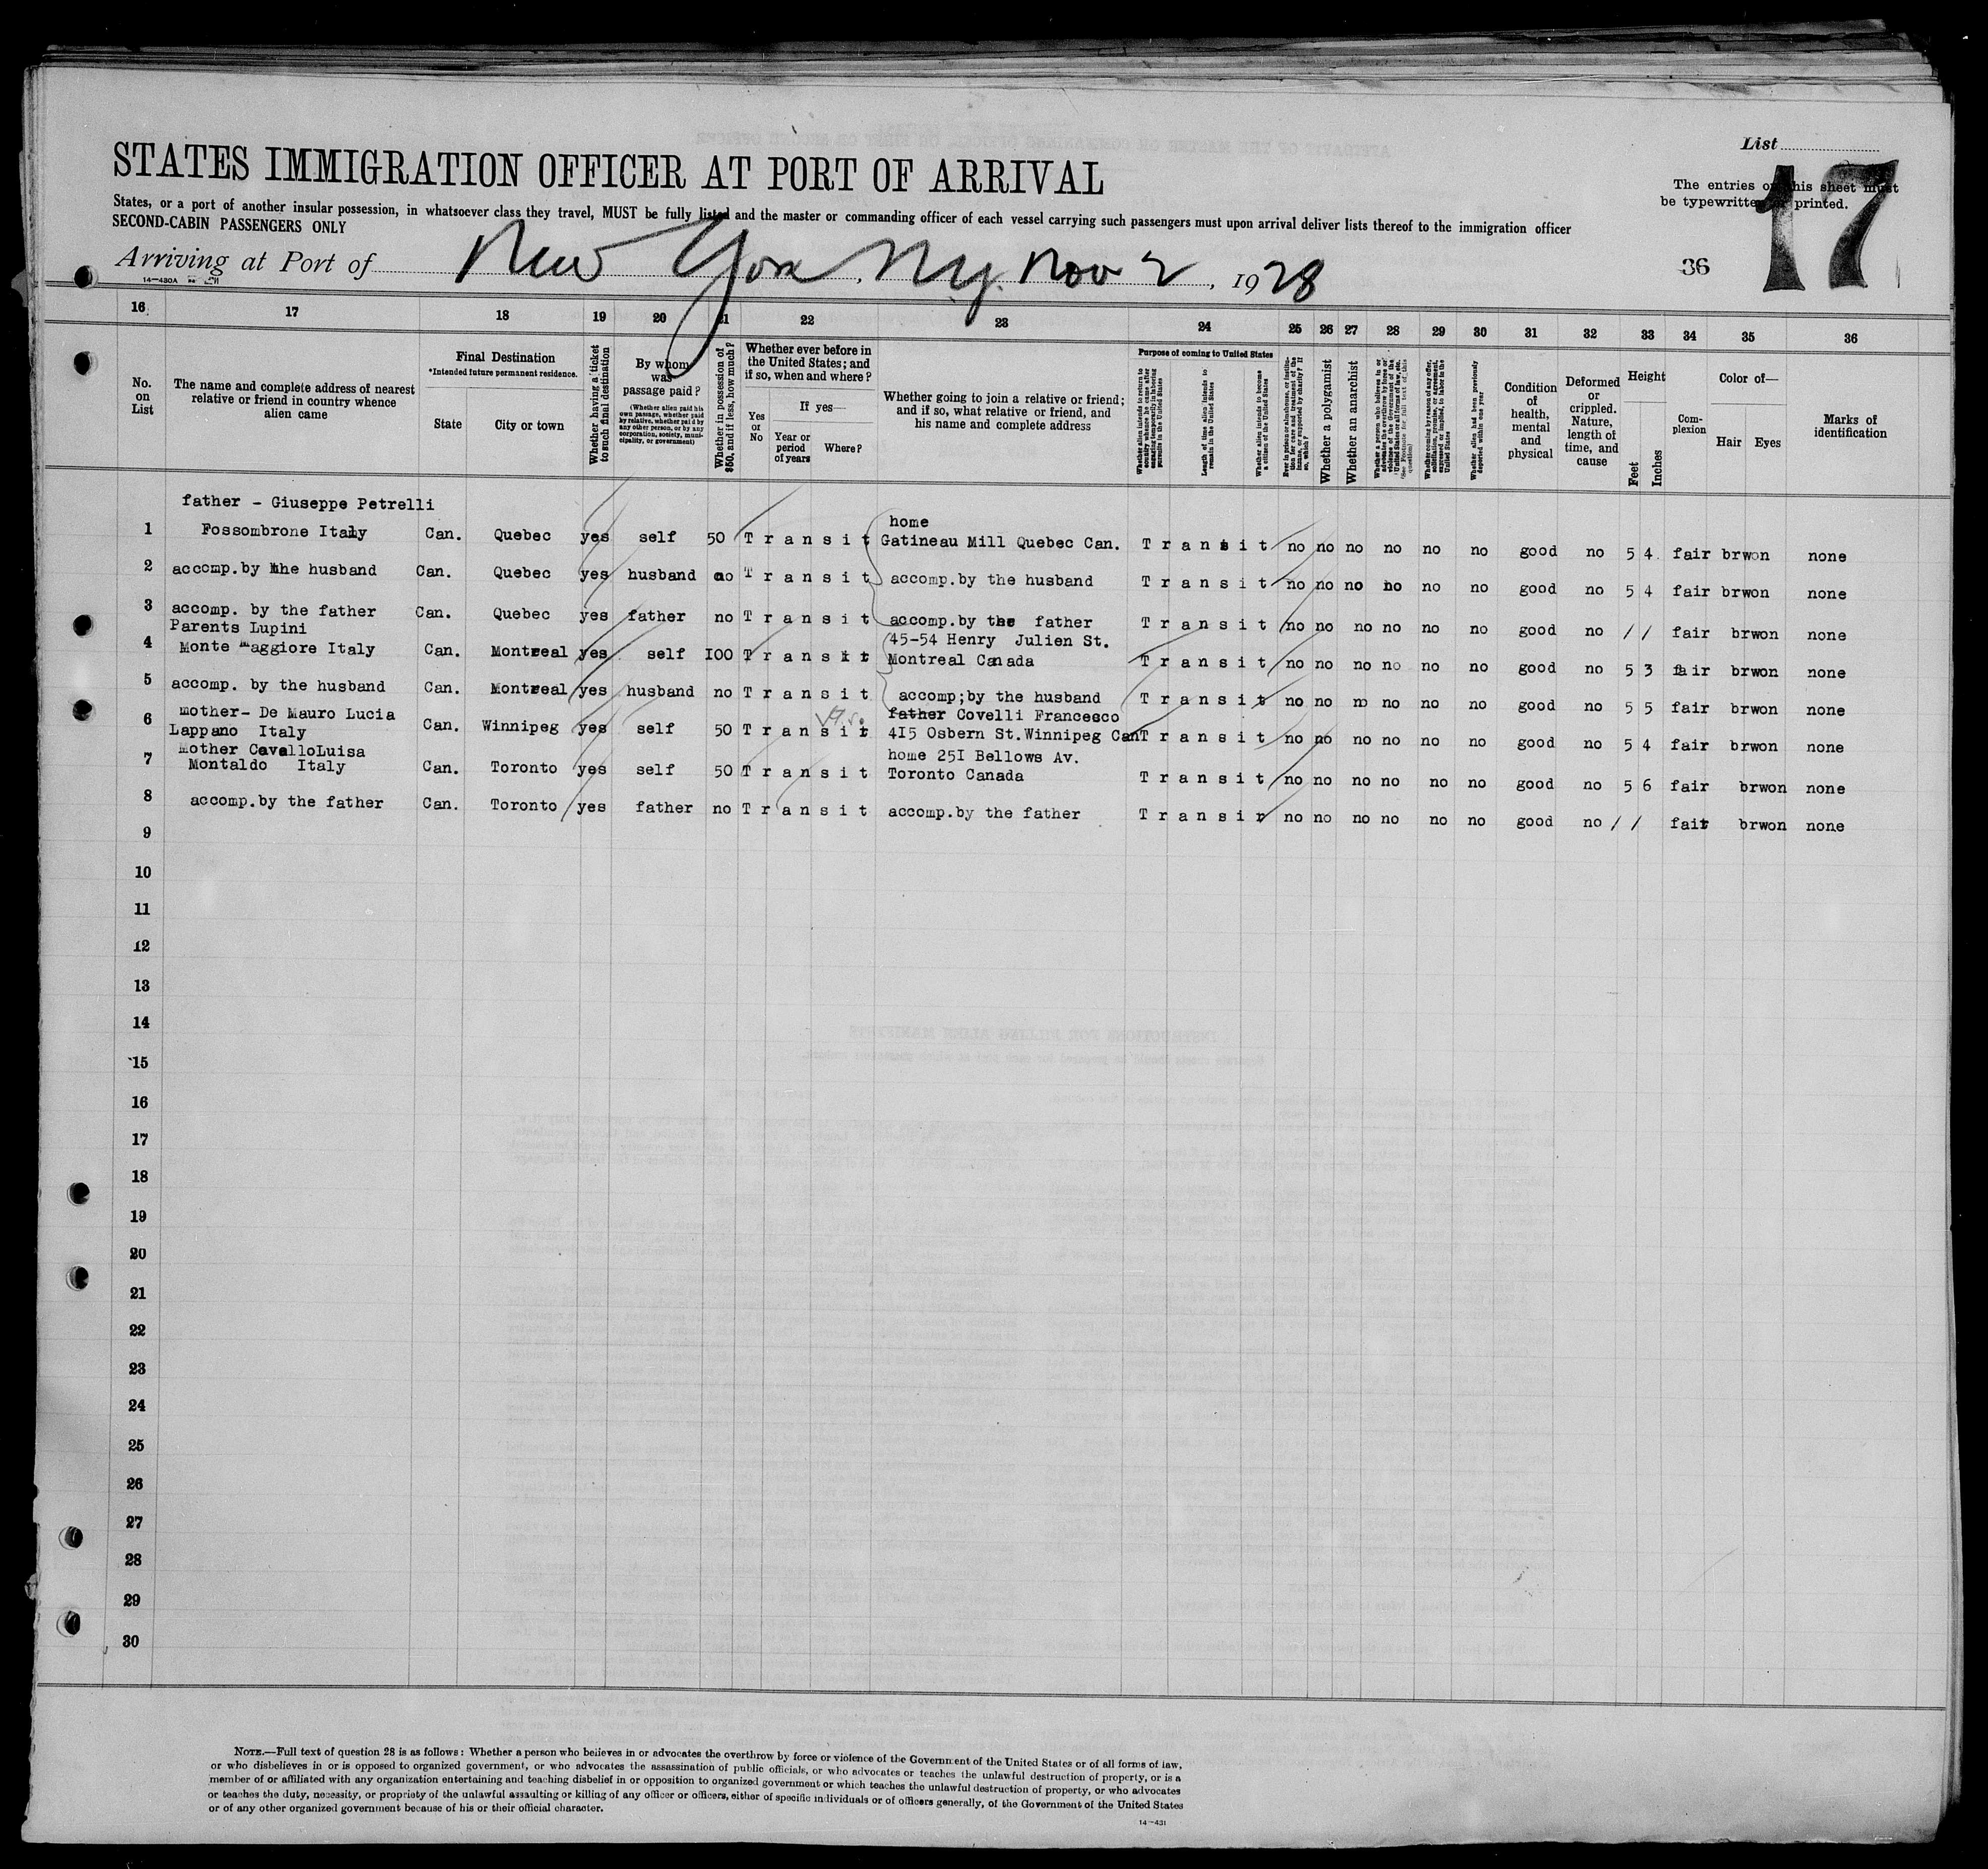 List
STATES IMMIGRATION OFFICER AT PORT OF ARRIVAL
17
The entries on this sheet must
be typewritten or printed.
States, or a port of another insular possession, in whatsoever class they travel, MUST be fully listed and the master or commanding officer of each vessel carrying such passengers must upon arrival deliver lists thereof to the immigration officer
SECOND-CABIN PASSENGERS ONLY
Arriving at Port of New York, Ny. Nov 2, 1928
36
14-430A
16 17 18 19 20 21 22 23 24 25 26 27 28 29 30 31 32 33 34 35 36
No. on List
The name and complete address of nearest relative or friend in country whence alien came
Final Destination
*Intended future permanent residence.
State
City or town
Whether having a ticket to such final destination
By whom was passage paid?
(Whether alien paid his own passage, whether paid by relative, whether paid by any other person, or by any corporation, society, municipality, or government)
Whether in possession of $50, and if less, how much?
Whether ever before in the United States; and if so, when and where?
Yes or No
If yes—
Year or period of years
Where?
Whether going to join a relative or friend; and if so, what relative or friend, and his name and complete address
Purpose of coming to United States
Whether alien intends to return to country whence he came after engaging temporarily in laboring pursuits in the United States
Length of time alien intends to remain in the United States
Whether alien intends to become a citizen of the United States
Ever in prison or almshouse, or institution for care and treatment of the insane, or supported by charity? If so, which?
Whether a polygamist
Whether an anarchist
Whether a person who believes in or advocates the overthrow by force or violence of the Government of the United States or all forms of law, etc. (See Footnote for full text of this question)
Whether coming by reason of any offer, solicitation, promise, or agreement, expressed or implied, to labor in the United States
Whether alien had been previously deported within one year
Condition of health, mental and physical
Deformed or crippled. Nature, length of time, and cause
Height
Feet
Inches
Complexion
Color of—
Hair Eyes
Marks of identification
father - Giuseppe Petrelli
1 Fossombrone Italy Can. Quebec yes self 50 Transit home
Gatineau Mill Quebec Can. Transit no no no no no no good no 5 4 fair brwon none
2 accomp.by the husband Can. Quebec yes husband no Transit accomp.by the husband Transit no no no no no no good no 5 4 fair brwon none
3 accomp. by the father Can. Quebec yes father no Transit accomp.by the father Transit no no no no no no good no / / fair brwon none
Parents Lupini 45-54 Henry Julien St.
4 Monte maggiore Italy Can. Montreal yes self I00 Transit Montreal Canada Transit no no no no no no good no 5 3 fair brwon none
5 accomp. by the husband Can. Montreal yes husband no Transit accomp;by the husband Transit no no no no no good no 5 5 fair brwon none
mother- De Mauro Lucia father Covelli Francesco
6 Lappano Italy Can. Winnipeg yes self 50 Transit 4I5 Osbern St.Winnipeg Can Transit no no no no no no good no 5 4 fair brwon none
mother CavalloLuisa home 25I Bellows Av.
7 Montaldo Italy Can. Toronto yes self 50 Transit Toronto Canada Transit no no no no no no good no 5 6 fair brwon none
8 accomp.by the father Can. Toronto yes father no Transit accomp.by the father Transit no no no no no no good no / / fair brwon none
9
10
11
12
13
14
15
16
17
18
19
20
21
22
23
24
25
26
27
28
29
30
NOTE.—Full text of question 28 is as follows: Whether a person who believes in or advocates the overthrow by force or violence of the Government of the United States or of all forms of law,
or who disbelieves in or is opposed to organized government, or who advocates the assassination of public officials, or who advocates or teaches the unlawful destruction of property, or is a
member of or affiliated with any organization entertaining and teaching disbelief in or opposition to organized government or which teaches the unlawful destruction of property, or who advocates
or teaches the duty, necessity, or propriety of the unlawful assaulting or killing of any officer or officers, either of specific individuals or of officers generally, of the Government of the United States
or of any other organized government because of his or their official character.
14-431